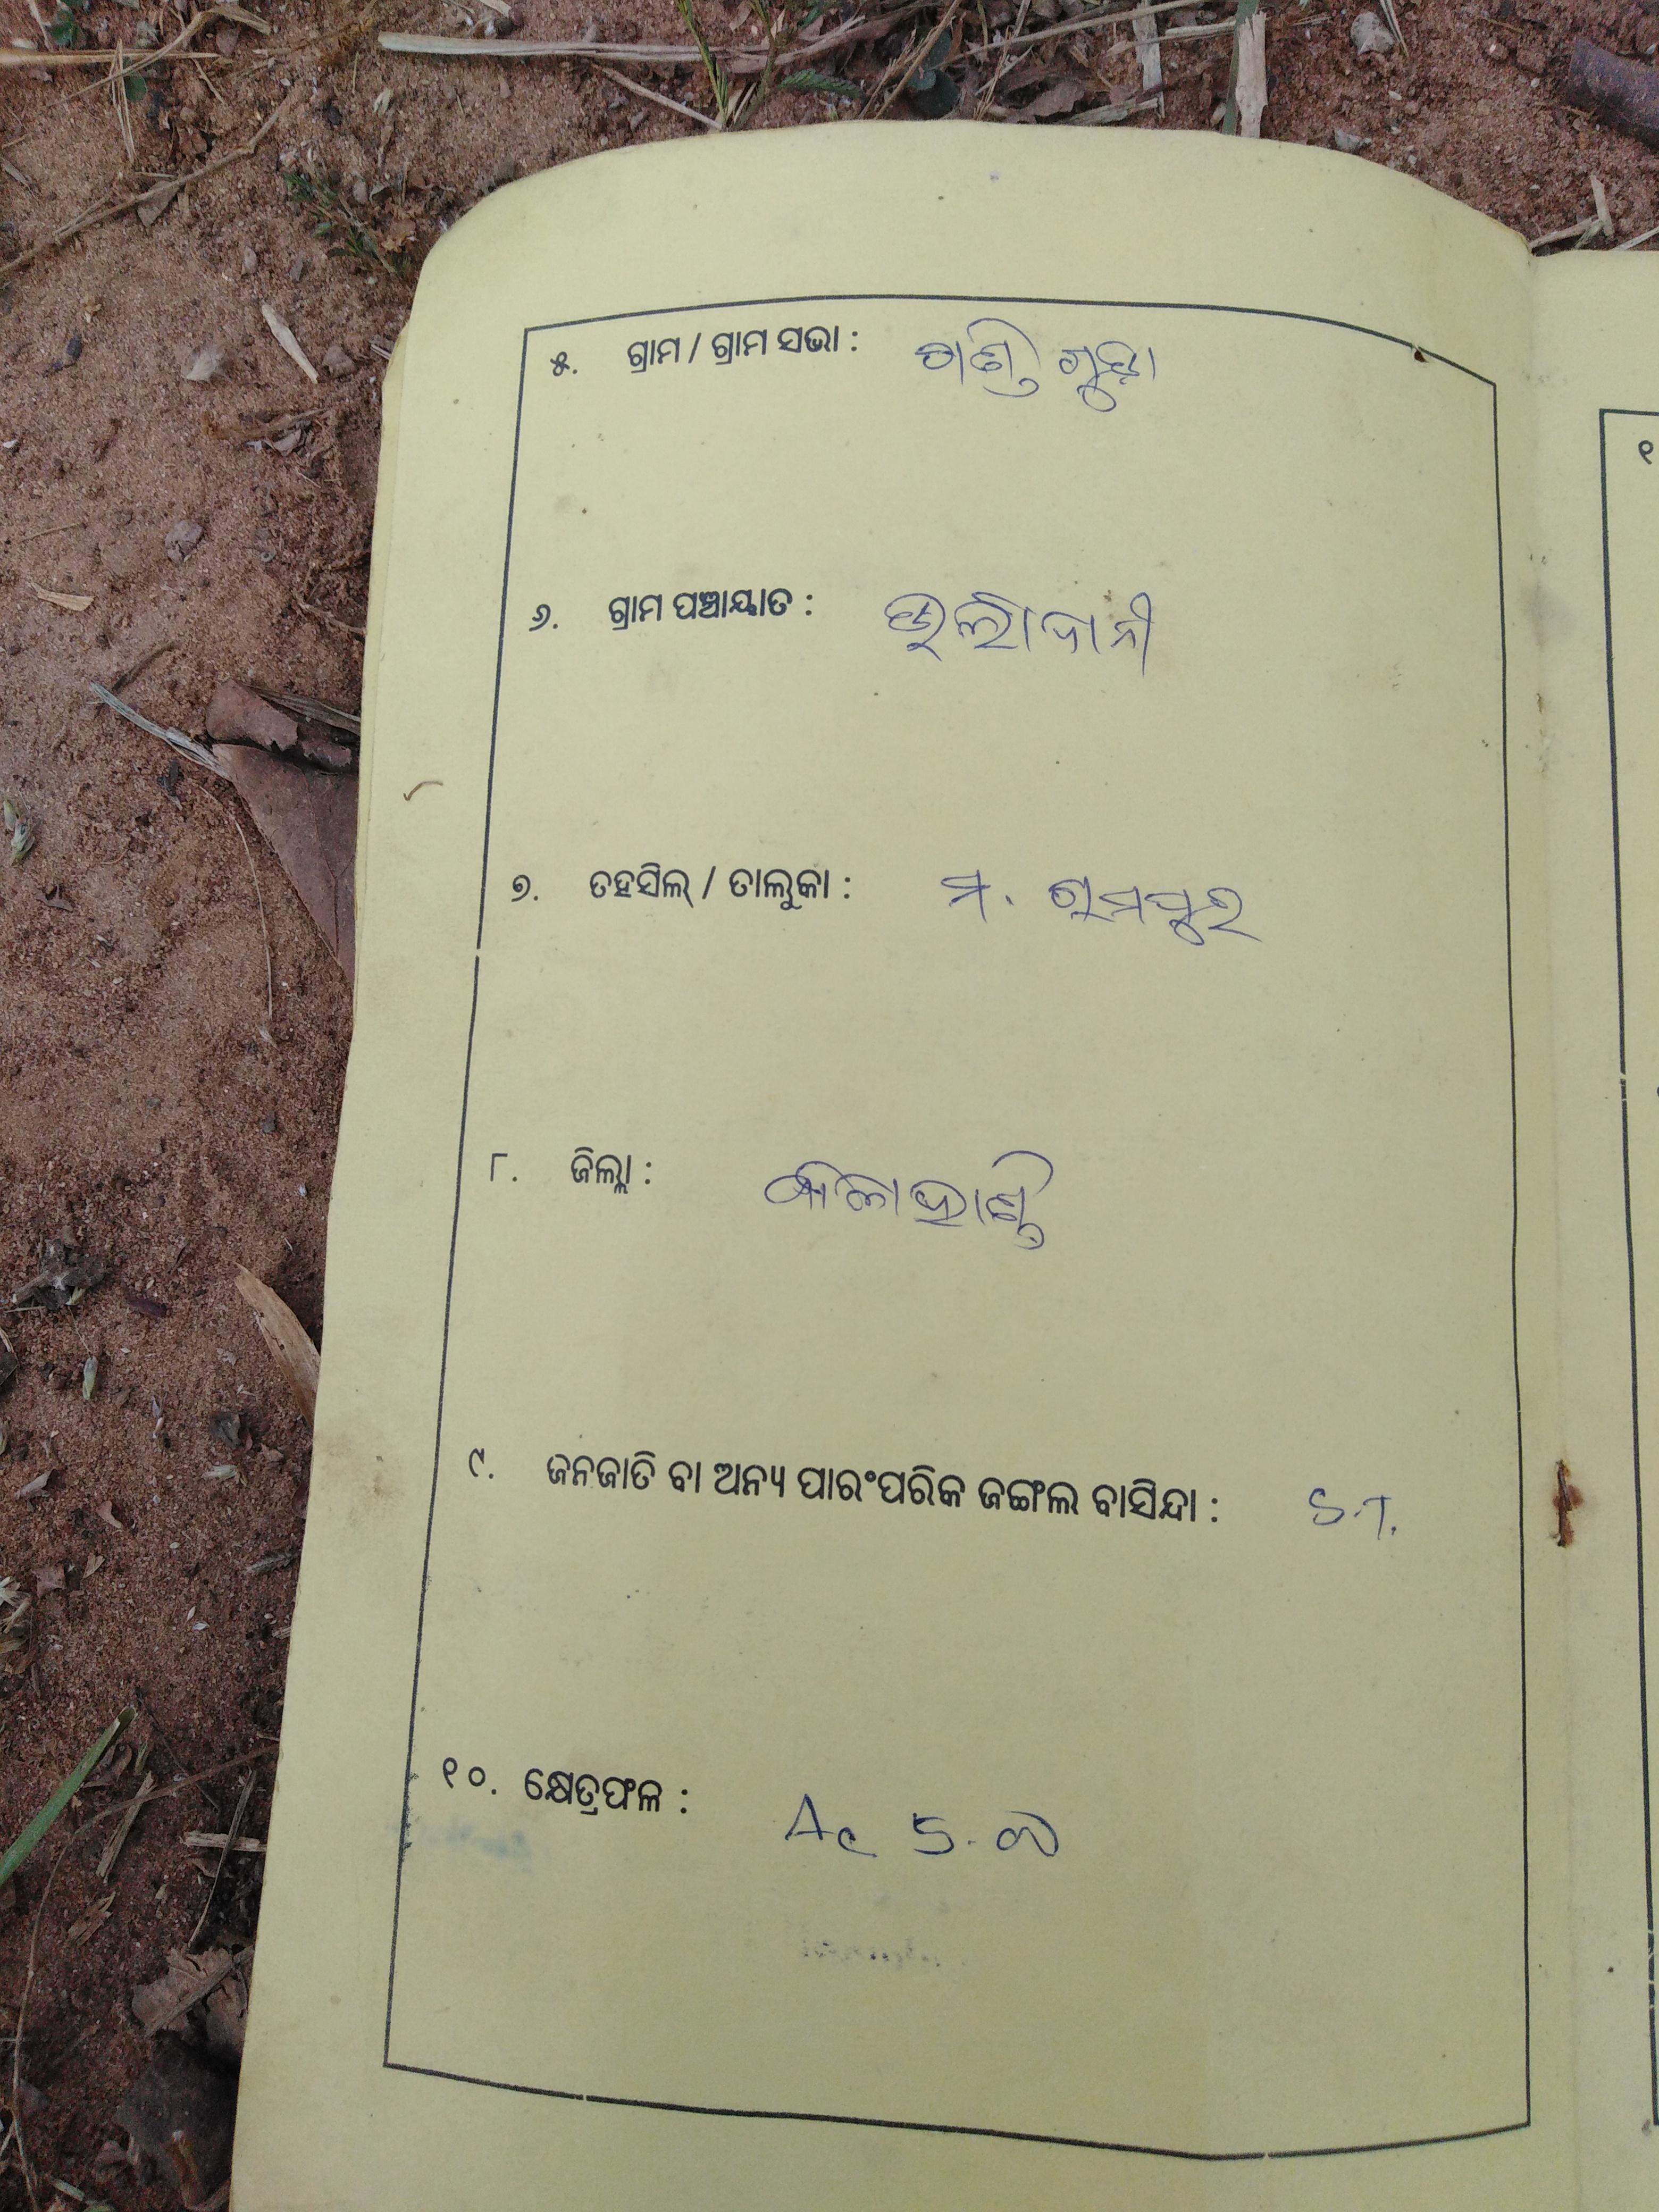 ୫. ଗ୍ରାମ / ଗ୍ରାମ ସଭା :
୬. ଗ୍ରାମ ପଞ୍ଚାୟାତ :
୭. ତହସିଲ୍ / ତାଲୁକା : ମ. ରାମପୁର
୮. ଜିଲ୍ଲା : କଳାହାଣ୍ଡି
୯. ଜନଜାତି ବା ଅନ୍ୟ ପାରଂପରିକ ଜଙ୍ଗଲ ବାସିନ୍ଦା : S.T.
୧୦. କ୍ଷେତ୍ରଫଳ : Ac 5.
୧